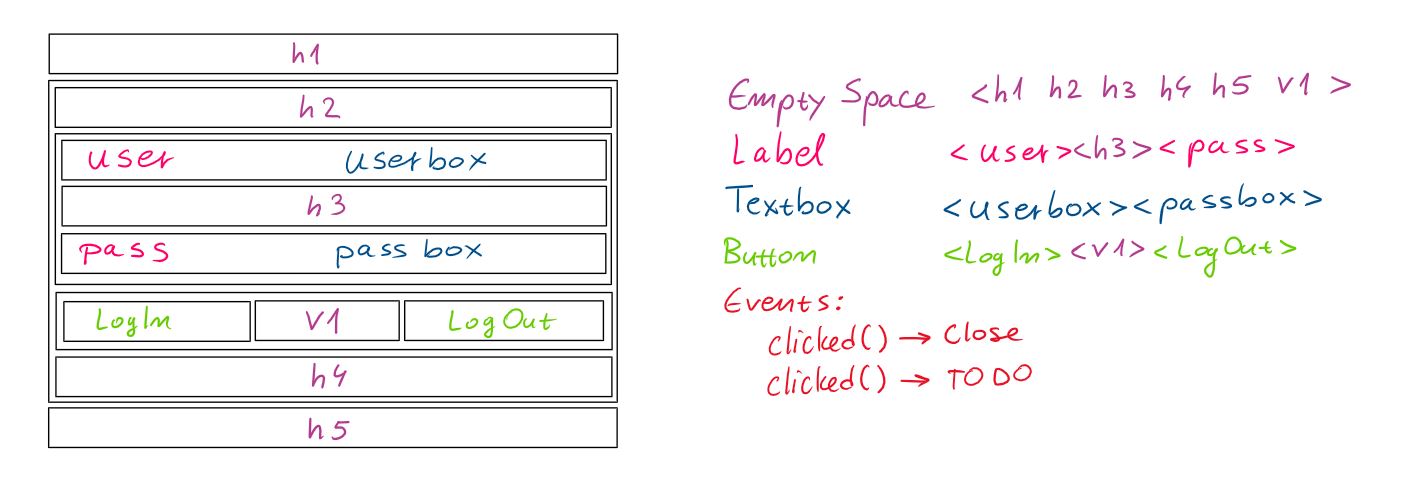 h1
h2
user userbox
h3
pass pass box
LogIn V1 LogOut
h4
h5
Empty Space <h1 h2 h3 h4 h5 V1 >
Label <user><h3><pass>
Textbox <userbox><passbox>
Button <LogIn><V1><LogOut>
Events:
clicked() → Close
clicked() → TODO